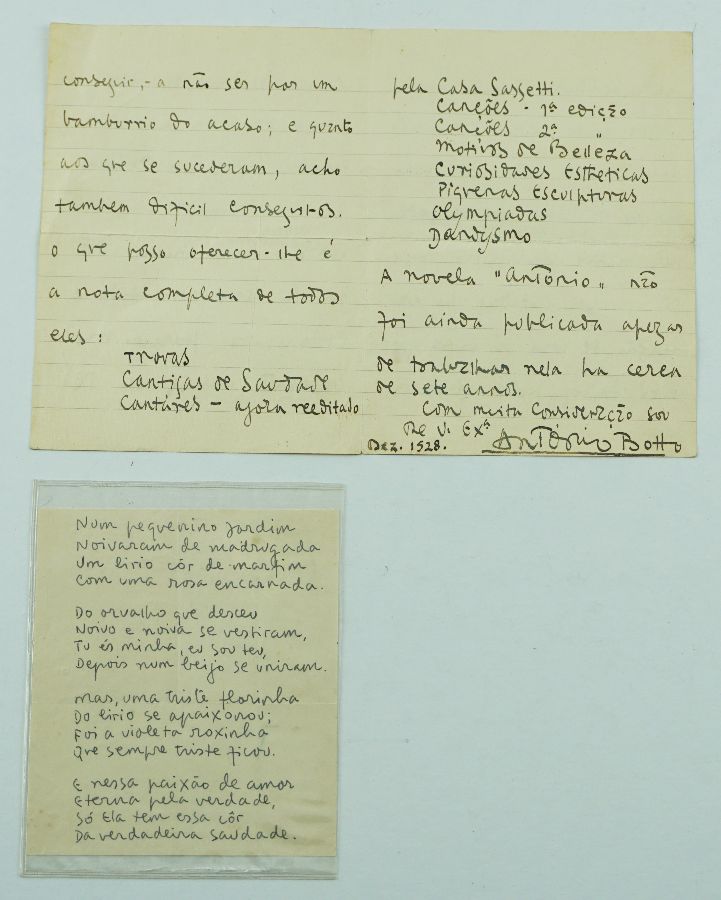 conseguir,- a não ser por um
bamburrio do acaso; e quanto
aos que se sucederam, acho
tambem dificil conseguil-os.
O que posso oferecer-lhe é
a nota completa de todos
eles:
Trovas
Cantigas de Saudade
Cantáres - agora reeditado
pela Casa Sassetti.
Canções - 1ª edição
Canções 2ª "
Motivos de Belleza
Curiosidades Estheticas
Piquenas Esculpturas
Olympiadas
Dandysmo
A novela "António" não
foi ainda publicada apezar
de trabalhar nela ha cerca
de sete annos.
Com muita consideração sou
De V. Exª
Dez. 1928. António Botto
Num pequenino jardim
Noivaram de madrugada
Um lirio côr de marfim
Com uma rosa encarnada.
Do orvalho que desceu
Noivo e noiva se vestiram,
Tu és minha, eu sou teu,
Depois num beijo se uniram.
Mas, uma triste florinha
Do lirio se apaixonou;
Foi a violeta roxinha
Que sempre triste ficou.
E nessa paixão de amor
Eterna pela verdade,
Só Ela tem essa côr
Da verdadeira saudade.